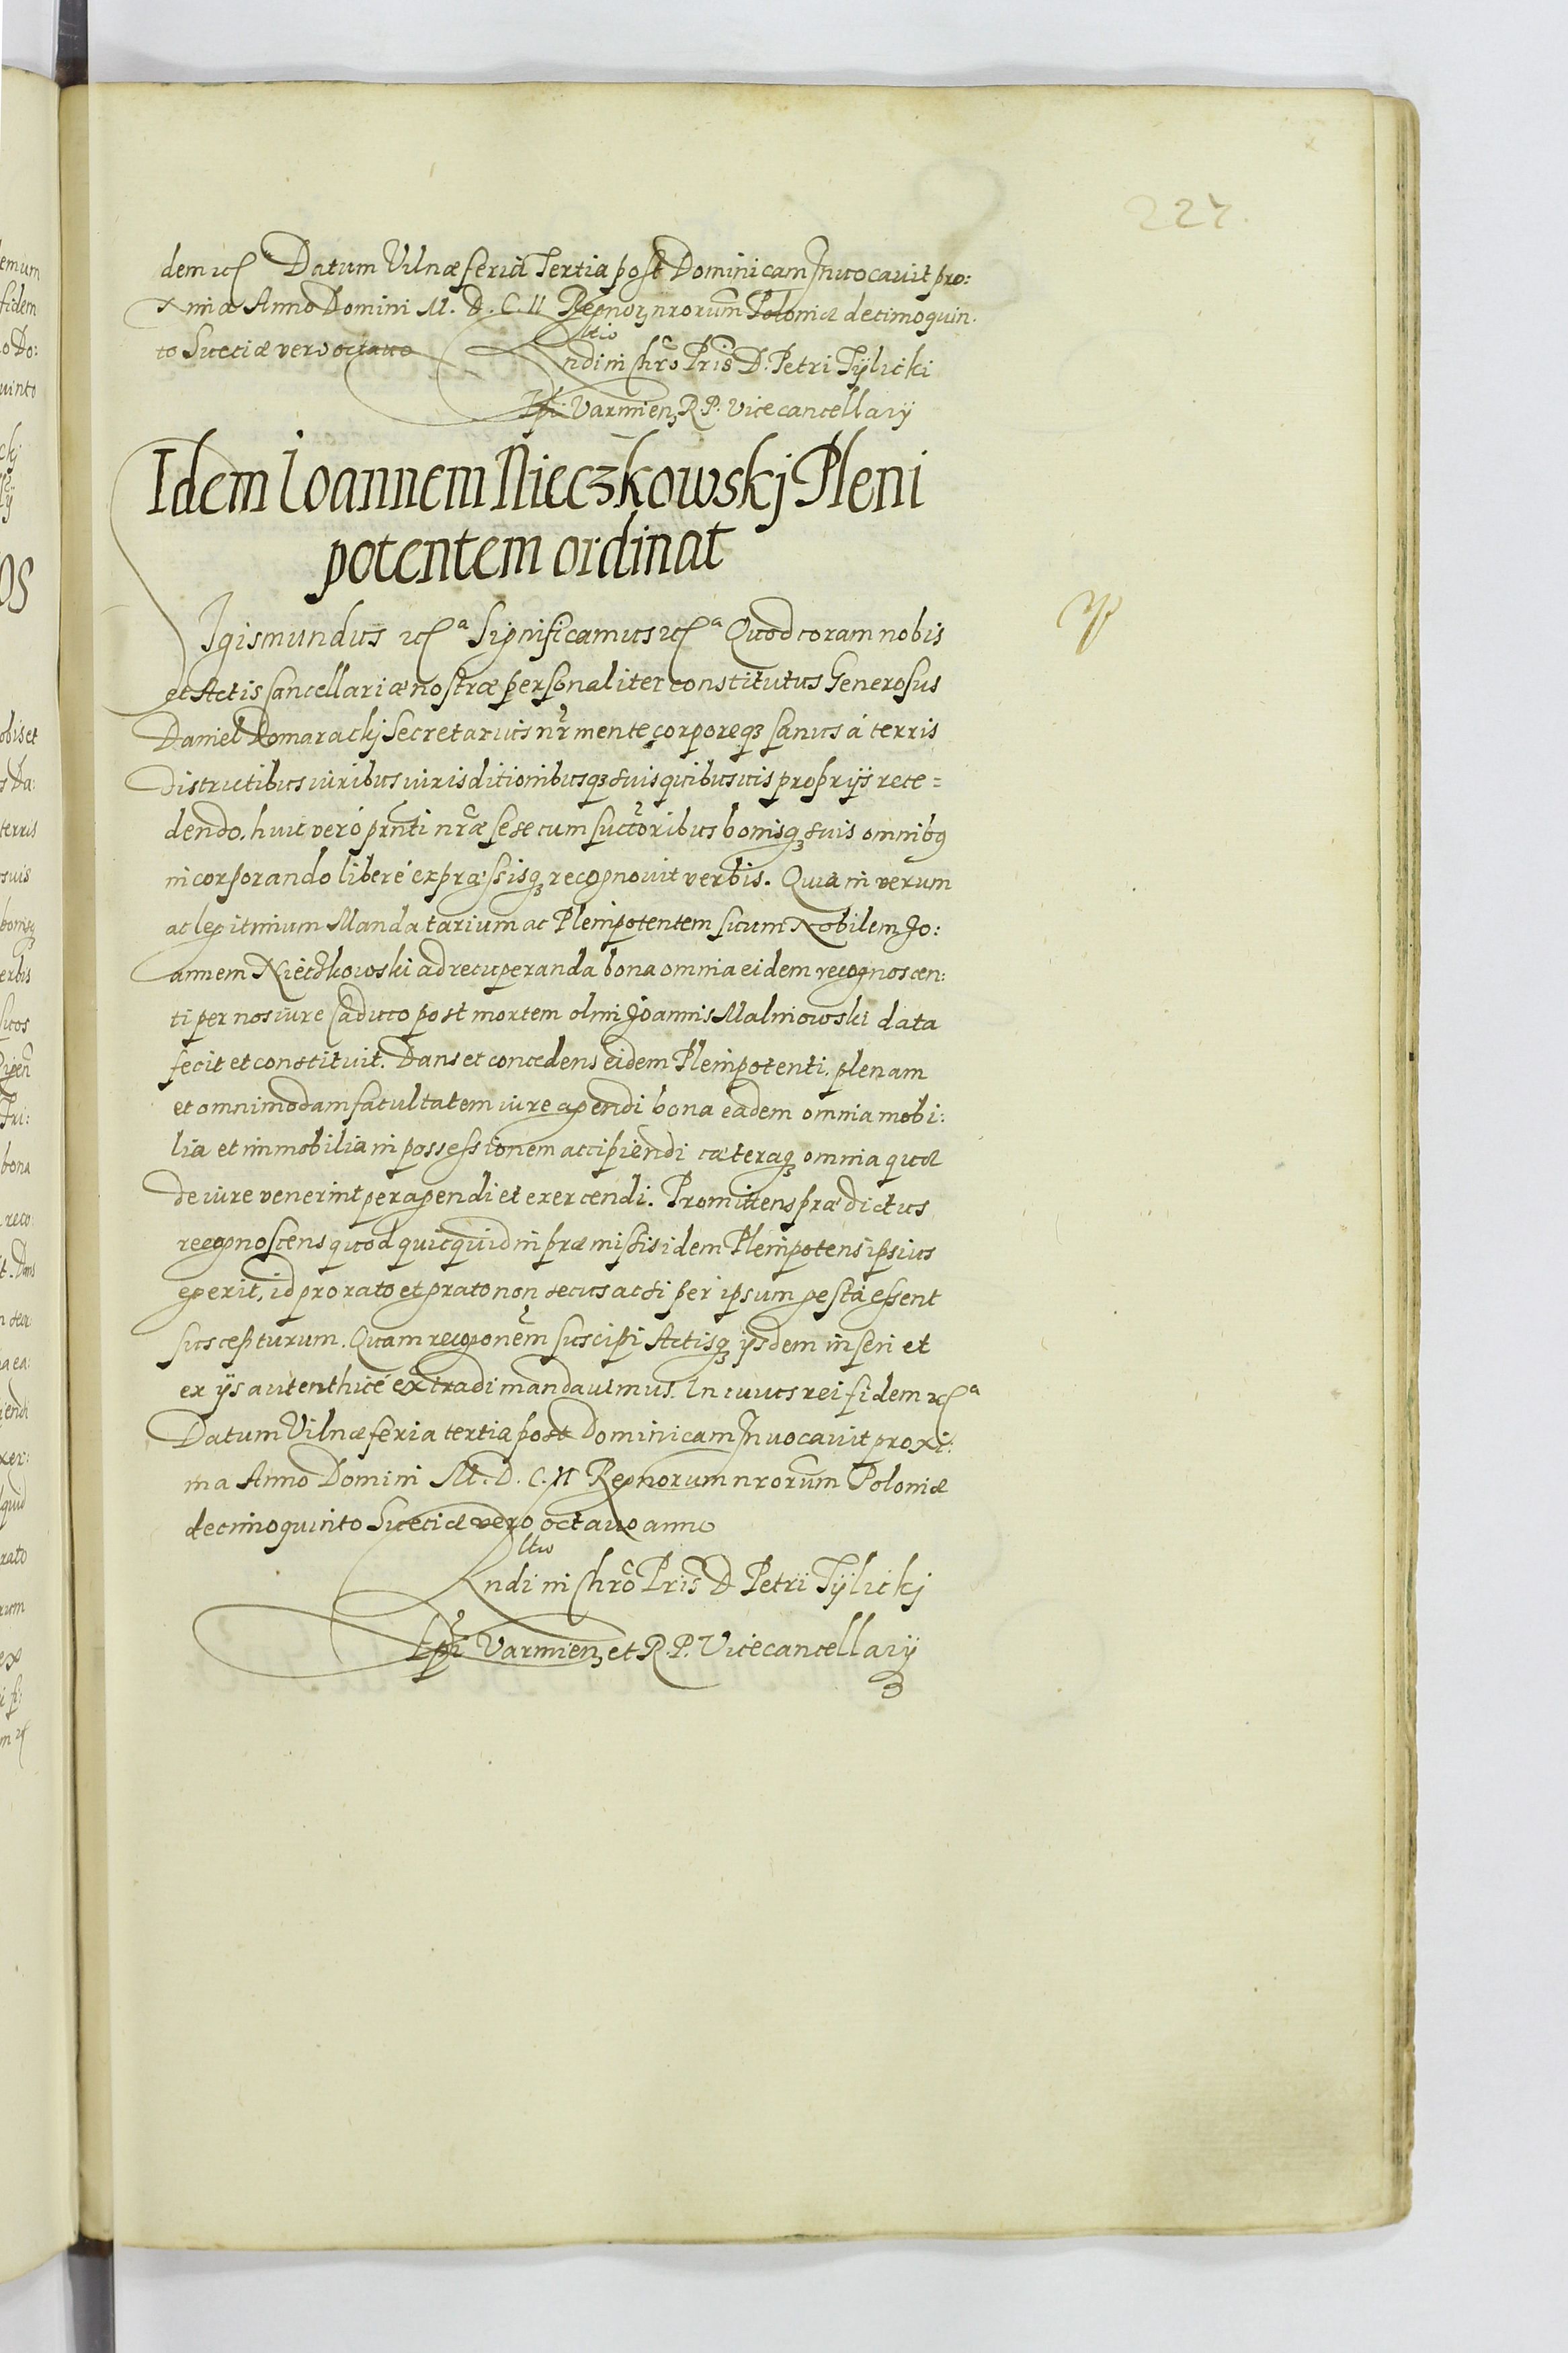 227.
dem etc Datum Vilnæ feria Tertia post Dominicam Inuocauit pro:
ximæ Anno Domini M. D. C. II Regnorꝫ nrorum Poloniæ decimoquin
to Sueciæ vero octauo
Rndi in Chro Pris D. Petri Tÿlicki
Epi Varmienꝫ R P. Vicecancellarÿ
Idem Ioannem Nieczkowskj Pleni
potentem ordinat
Sigismundus etcᵃ Significamus etcᵃ Quod coram nobis
et Actis Cancellariæ nostræ personaliter constitutus Generosus
Daniel Domarackj Secretarius nr mente corporeqꝫ sanus á terris
Districtibus iuribus iurisditionibusqꝫ suis quibusuis proprÿs rece=
dendo, huic veró prnti nræ sese cum succoribus bonisqꝫ suis omnibꝫ
incorporando liberé expræssisqꝫ recognouit verbis. Quia in verum
ac legitmium Mandatarium ac Plenipotentem suum Nobilem Jo:
annem Nieczkowski ad recuperanda bona omnia eidem recognoscen:
ti per nos iure Caduco post mortem olmi Joannis Malniowski data
fecit et constituit. Dans et concedens eidem Plenipotenti, plenam
et omnimodam facultatem iure agendi bona eadem omnia mobi:
lia et immobilia in possessionem accipiendi cæteraqꝫ omnia quæ
de iure venerint peragendi et exercendi. Promittens prædictus
recognoscens quod quicquid in præmissis idem Plenipotens ipsius
egerit, id pro rato et grato non secus ac si per ipsum gesta essent
suscepturum. Quam recogonem suscipi Actisqꝫ ÿsdem inseri et
ex ÿs autenthicé extradi mandauimus. In cuius rei fidem etcᵃ
Datum Vilnæ feria tertia post Dominicam Inuocauit proxi:
ma Anno Domini M. D. C. II Regnorum nrorum Poloniæ
decimoquinto Sueciæ vero octauo anno
Rndi in Chro Pris D Petri Tÿlickj
Epi Varmienꝫ et R. P. Vicecancellarÿ